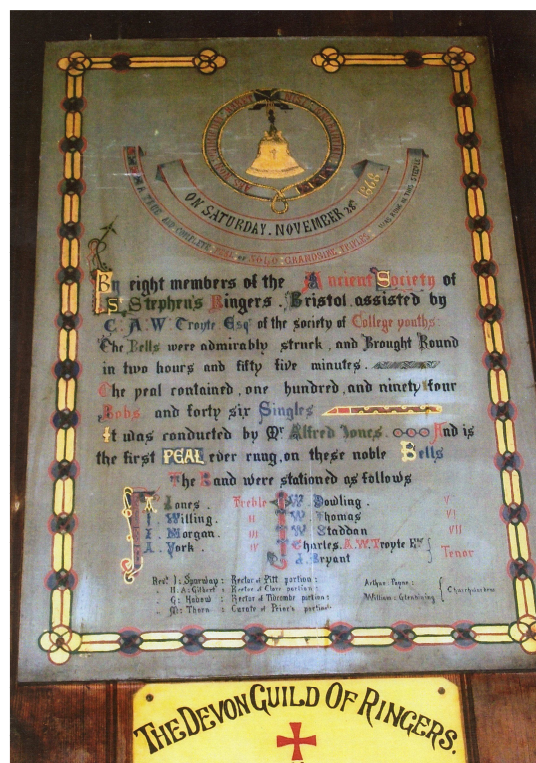 WHEN A TRUE AND COMPLETE PEAL OF 5040 GRANDSIRE TRIPLES WAS RUNG IN THIS STEEPLE
ON SATURDAY, NOVEMBER 28th 1868
By eight members of the Ancient Society of
S. Stephen's Ringers. Bristol, assisted by
C. A. W. Troyte. Esqr of the society of College youths:
The Bells were admirably struck, and Brought Round
in two hours and fifty five minutes.
The peal contained, one hundred, and ninety four
Bobs, and forty six Singles
It was conducted by Mr Alfred Jones. And is
the first PEAL ever rung, on these noble Bells
The Band were stationed as follows
A Jones. Treble W. Dowling. V
Willing. II W. Thomas VI
Morgan. III W Staddan VII
A. York. IV Charles. A. W. Troyte Esqr
Bryant Tenor
Revd J: Spurway: Rector of Pitt portion:
" H. A: Gilbert: Rector of Clare portion:
" G: Rector of Tidcombe portion:
" Thorn: Curate of Prior's portion:
Arthur: Payne:
William: Glendining Churchwardens
THE DEVON GUILD OF RINGERS.